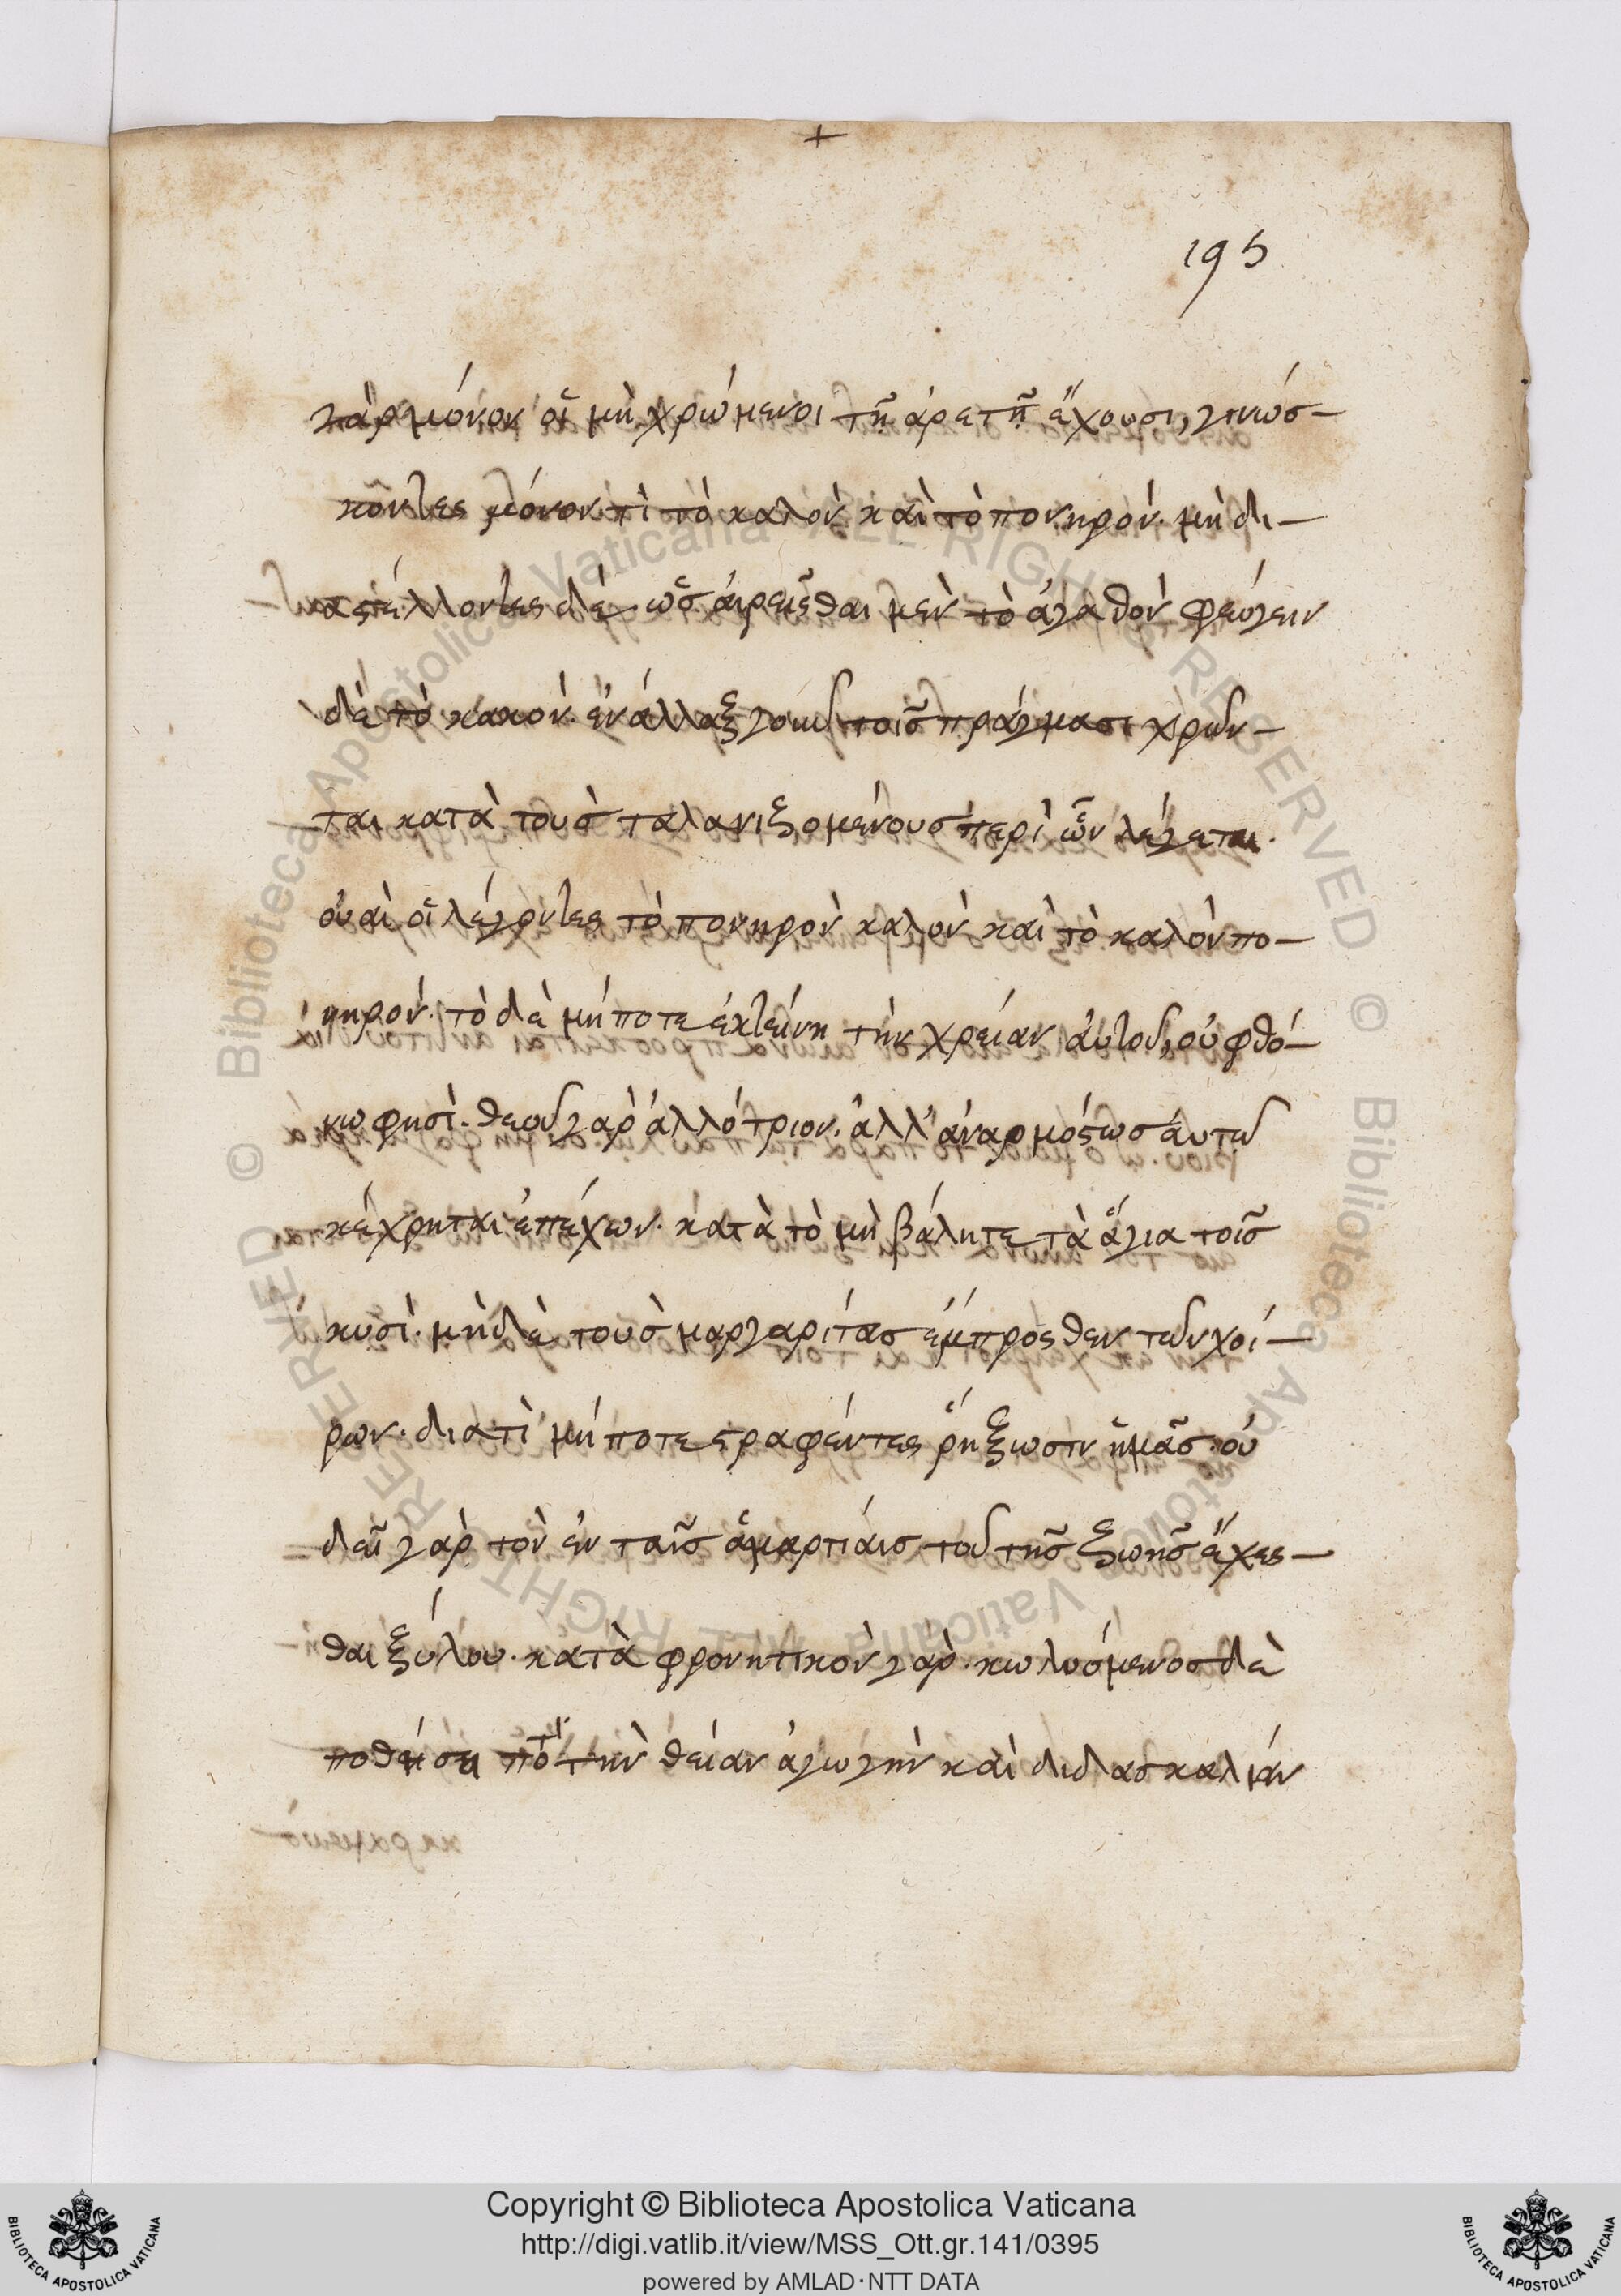 +
195
γὰρ μόνον οἱ μὴ χρώμενοι τῇ ἀρετῇ ἔχουσι, γινώσ–
κοντες μόνον τὶ τὸ καλὸν καὶ τὸ πονηρόν. μὴ δι–
αστέλλοντες δέ. ὡς αἱρεῖσθαι μὲν τὸ ἀγαθὸν φεύγειν
δὲ τὸ κακόν. ἐνάλλαξ γοῦν τοῖς πράγμασι χρῶν–
ται κατὰ τοὺς ταλανιζομένους περὶ ὧν λέγεται.
οὐαὶ οἱ λέγοντες τὸ πονηρὸν καλὸν καὶ τὸ καλὸν πο–
νηρόν. τὸ δὲ μήποτε ἐκτείνη τὴν χρείαν αὐτοῦ, οὐ φθό–
νω φησὶ. θεοῦ γὰρ ἀλλότριον. ἀλλ' ἀναρμόστως αὐτῶ
κέχρηται ἐπέχων. κατὰ τὸ μὴ βάλητε τὰ ἅγια τοῖς
κυσὶ. μὴδὲ τοὺς μαργαρίτας ἔμπροσθεν τῶν χοί–
ρων. διατὶ μήποτε στραφέντες ῥήξωσιν ἡμᾶς. οὐ
δεῖ γὰρ τὸν ἐν ταῖς ἁμαρτίαις τοῦ τῆς ζωῆς ἔχεσ–
θαι ξύλου. καταφρονητικὸν γάρ. κωλυόμενος δὲ
ποθήσει τὴν θείαν ἀγωγὴν καὶ διδασκαλίαν
Copyright © Biblioteca Apostolica Vaticana
http://digi.vatlib.it/view/MSS_Ott.gr.141/0395
powered by AMLAD·NTT DATA
BIBLIOTECA APOSTOLICA VATICANA
BIBLIOTECA APOSTOLICA VATICANA
© Biblioteca Apostolica Vaticana ALL RIGHTS RESERVED © Biblioteca Apostolica Vaticana ALL RIGHTS RESERVED